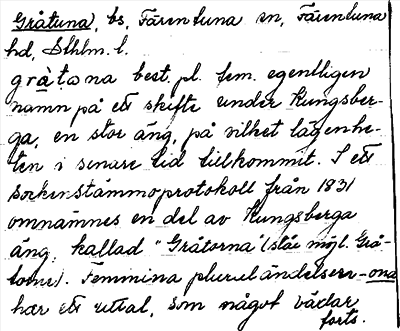 Gråtuna, bs, Färentuna sn, Färentuna
hd, Sthlm. l.
gràtona best. pl. fem. egentligen
namn på ett skifte under Kungsber-
ga, en stor äng, på vilket lägenhe-
ten i senare tid tillkommit. I ett
sockenstämmoprotokoll från 1831
omnämnes en del av Kungsberga
äng, kallad "Gråtorna" (står möjl. Grå-
tonr). Feminina pluraländelsern -ona
har ett uttal, som något växlar
forts.